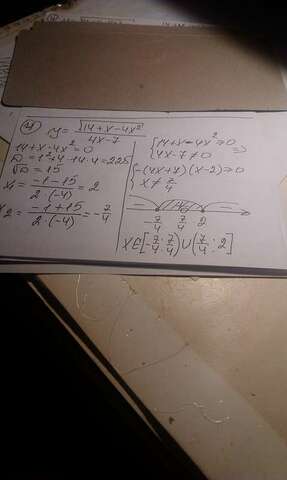 ④ y = √(14+x-4x²) / (4x-7)
14+x-4x²=0
D=1²+4·14·4=225
√D=15
x₁ = (-1-15) / (2·(-4)) = 2
x₂ = (-1+15) / (2·(-4)) = -7/4
{14+x-4x²≥0
{4x-7≠0 ⇒
{-(4x+7)(x-2)≥0
{x≠7/4
-7/4 7/4 2
x∈[-7/4; 7/4)∪(7/4; 2]